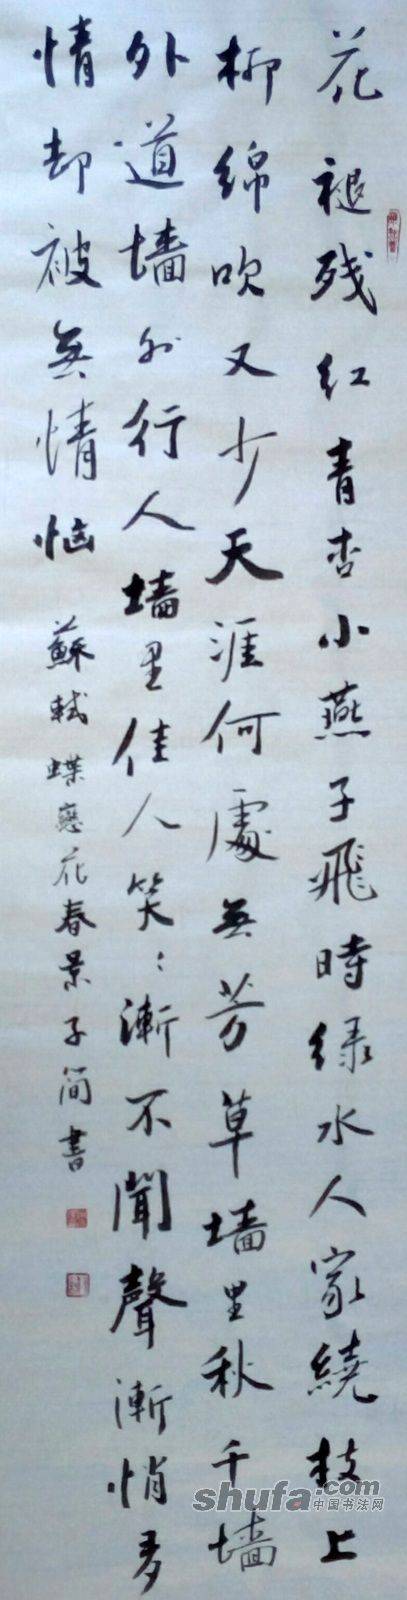 花褪残红青杏小燕子飛時绿水人家繞枝上
柳綿吹又少天涯何處無芳草墙里秋千墙
外道墙外行人墙里佳人笑〻漸不聞聲漸悄多
情却被無情恼 蘇軾蝶戀花春景 子简書
shufa.com
中国书法网